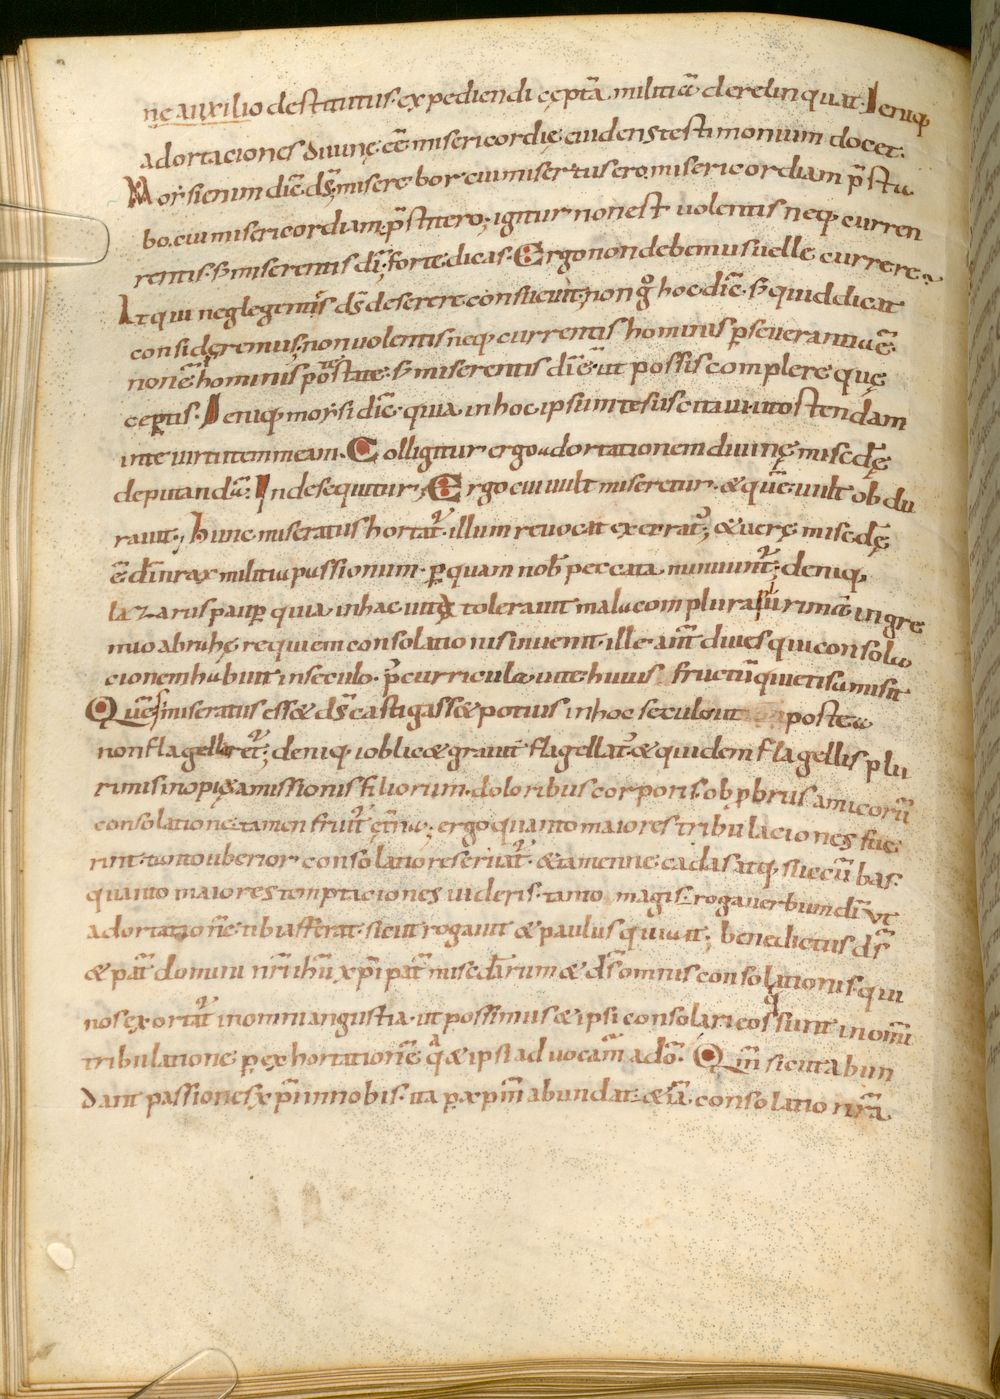 ne auxilio destitutus. expediendi cęptā militiā derelinquat. Deniq;
adortaciones diuinę eē misericordię euidens testimonium docet.
Moysi enim diē ds̄. miserebor cui misertus ero. misericordiam p̄sta
bo. cui misericordiam p̄stitero; igitur non est uolentis neq; curren
rentis. s; miserentis dī; forte dicas. Ergo non debemus uelle currere?
Atqui neglegentis ds̄ deserere consueuit; non g° hoc diē. s; quid dicat
consideremus; non uolentis neq; currentis hominis perseuerantia ē
non ē hominis potestate. s; miserentis dī ē. ut possis complere quę
ceperis. Deniq; moysi diē. quia in hoc ipsum te suscitaui. ut ostendam
in te uirtutem meam. Colligitur ergo adortationem diuinę misēdę
deputandā. Inde sequitur; Ergo cui uult miseretur. & quē uult obdu
rauit; hunc miseratus hortat̄. illum reuocat ex errat̄; & uerę misēdę
ē dīnrax militia passionum. per quam nob̄ peccata minuunt̄; deniq;
lazarus paup quia in hac uita tolerauit mala complura plurima in gre
mio abrahę requiem consolationis inuenit. ille aut̄ diues qui consola
cionem habuit in seculo. per curricula uitę huius fructū quietis amisit
Quē si miseratus ess& ds̄ castigass& potius in hoc seculo ut postea
non flagellaret̄; deniq; iob lic& grauit̄ flagellat̄ & quidem flagellis plu
rimis inopię amissionis filiorum. doloribus corporis. obprobriis amicorū
consolatione tamen fruit̄ ęt̄na; ergo quanto maiores tribulaciones fue
rint. tanto uberior consolatio reseruat̄. & tamen ne cadas atq; succūbas.
quanto maiores temptaciones uideris. tanto magis. roga uerbum dī ut
adortationē tibi afferat. sicut rogauit & paulus qui ait; benedictus ds̄
& pat̄ domini nr̄i ihū xpi pat̄ misēdiarum & ds̄ omnis consolationis. qui
nos exortat̄ in omni angustia. ut possimus & ipsi consolari eos q sunt in omī
tribulatione per exhortationē qa & ipsi aduocam̄ a dō. Qm̄ sicut abun
dant passiones xpi in nobis. ita per xpm̄ abundat & iā consolatio nr̄a